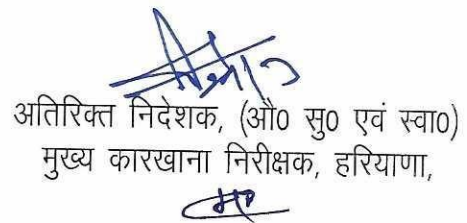 अतिरिक्त निदेशक, (औ० सु० एवं स्वा०)
मुख्य कारखाना निरीक्षक, हरियाणा,